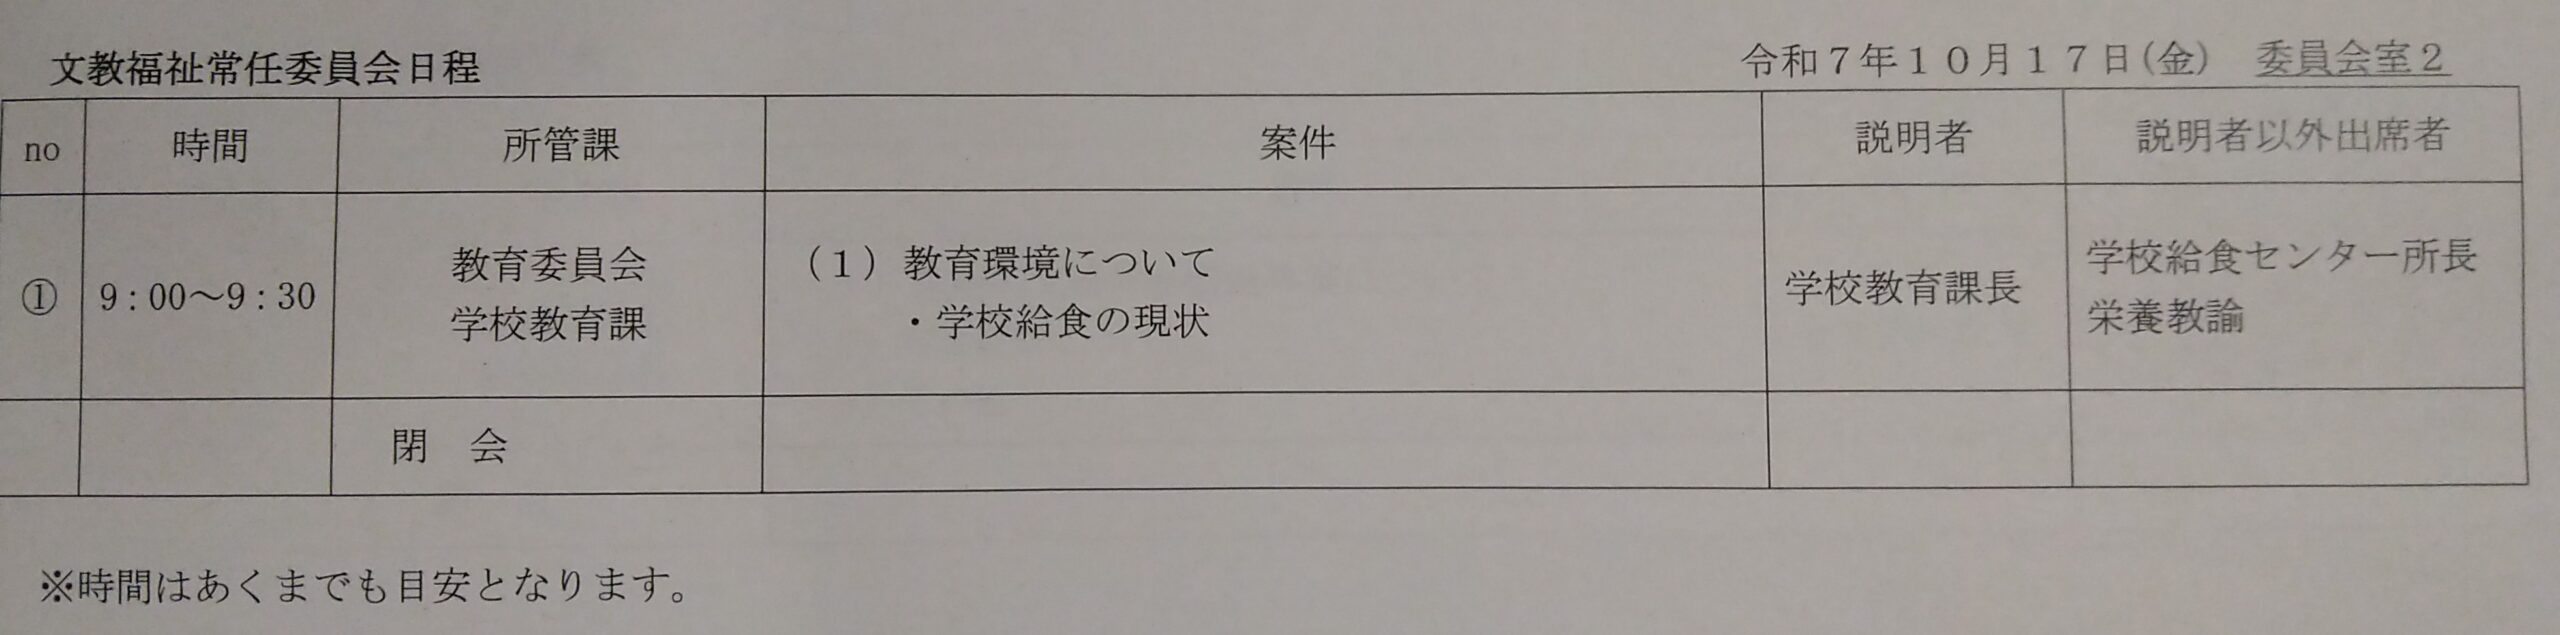 文教福祉常任委員会日程
令和７年１０月１７日(金)　委員会室２
no
時間
所管課
案件
説明者
説明者以外出席者
①
9：00～9：30
教育委員会
学校教育課
（１）教育環境について
・学校給食の現状
学校教育課長
学校給食センター所長
栄養教諭
閉　会
※時間はあくまでも目安となります。